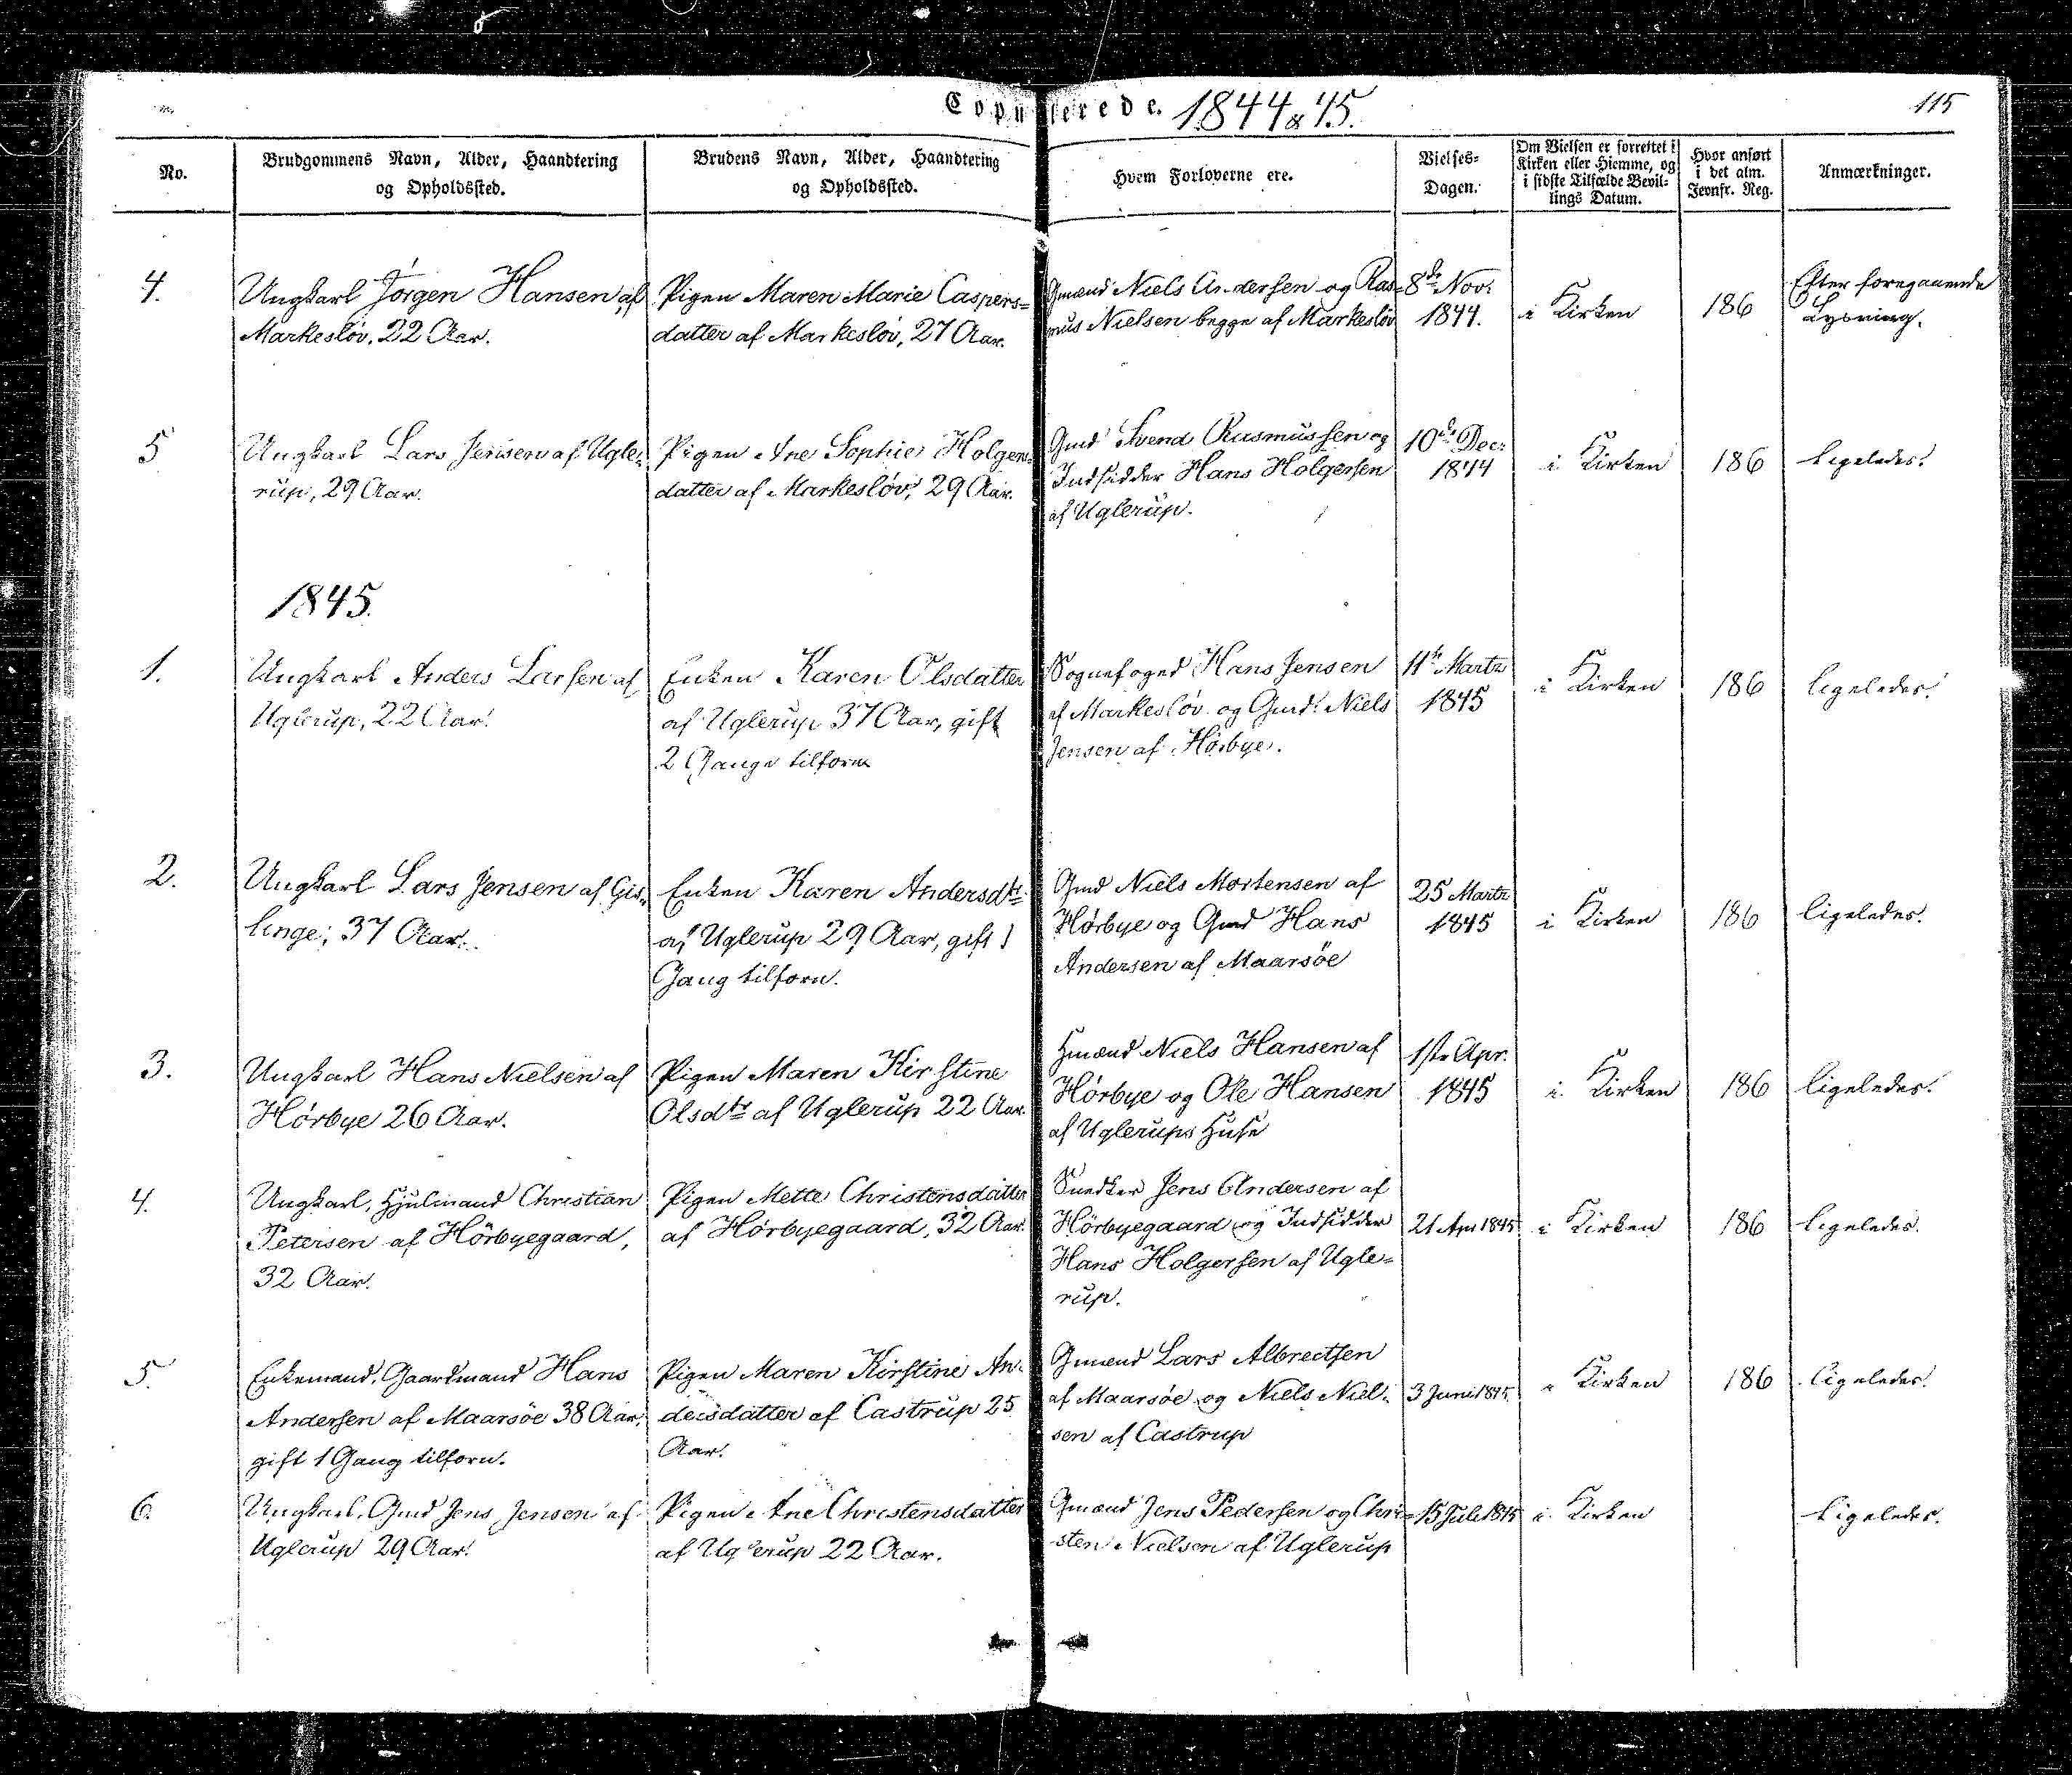 Copulerede. 1844 & 45.
115
No.
Brudgommens Navn, Alder, Haandtering
og Opholdssted.
Brudens Navn, Alder, Haandtering
og Opholdssted.
Hvem Forloverne ere.
Vielses-
Dagen.
Om Vielsen er forrettet i
Kirken eller Hiemme, og
i sidste Tilfælde Bevil-
lings Datum.
Hvor anført
i det alm.
Jevnfr. Reg.
Anmærkninger.
4.
Ungkarl Jörgen Hansen, af
Markeslöv, 22 Aar.
Pigen Maren Marie Caspers-
datter af Markeslöv, 27 Aar.
Gmænd Niels Andersen og Ras-
mus Nielsen begge af Markeslöv
8de Nov:
1844.
i Kirken
186
Efter foregaaende
Lysning.
5
Ungkarl Lars Jensen af Ugle-
rup, 29 Aar.
Pigen Ane Sophie Holgers-
datter af Markeslöv, 29 Aar.
Gmd Svend Rasmussen og
Indsidder Hans Holgersen
af Uglerup.
10de Dec:
1844
i Kirken
186
ligeledes.
1845.
1.
Ungkarl Anders Larsen af
Uglerup, 22 Aar.
Enken Karen Olsdatter
af Uglerup 37 Aar, gift
2 Gange tilforn
Sognefoged Hans Jensen
af Markeslöv og Gmd. Niels
Jensen af Hörbye.
11te Martz
1845
i Kirken
186
ligeledes.
2.
Ungkarl Lars Jensen af Gis-
linge, 37 Aar.
Enken Karen Andersdtr
af Uglerup 29 Aar, gift 1
Gang tilforn.
Gmd Niels Mortensen af
Hörbye og Gmd Hans
Andersen af Maarsöe
25 Martz
1845
i Kirken
186
ligeledes.
3.
Ungkarl Hans Nielsen af
Hörbye 26 Aar.
Pigen Maren Kirstine
Olsdtr af Uglerup 22 Aar.
Hmænd Niels Hansen af
Hörbye og Ole Hansen
af Uglerups Huse
1ste Apr.
1845
i Kirken
186
ligeledes.
4.
Ungkarl, Hjulmand Christian
Petersen af Hörbyegaard,
32 Aar.
Pigen Mette Christensdatter
af Hörbyegaard, 32 Aar.
Snedker Jens Andersen af
Hörbyegaard og Indsidder
Hans Holgersen af Ugle-
rup.
21 Apr 1845
i Kirken
186
ligeledes.
5.
Enkemand, Gaardmand Hans
Andersen af Maarsöe 38 Aar,
gift 1 Gang tilforn.
Pigen Maren Kirstine An-
dersdatter af Castrup 25
Aar.
Gmænd Lars Albrectsen
af Maarsöe og Niels Niel-
sen af Castrup
3 Juni 1845
i Kirken
186
ligeledes.
6.
Ungkarl, Gmd Jens Jensen af
Uglerup 29 Aar.
Pigen Ane Christensdatter
af Uglerup 22 Aar.
Gmænd Jens Pedersen og Chri-
sten Nielsen af Uglerup
15 Juli 1845
i Kirken
ligeledes.